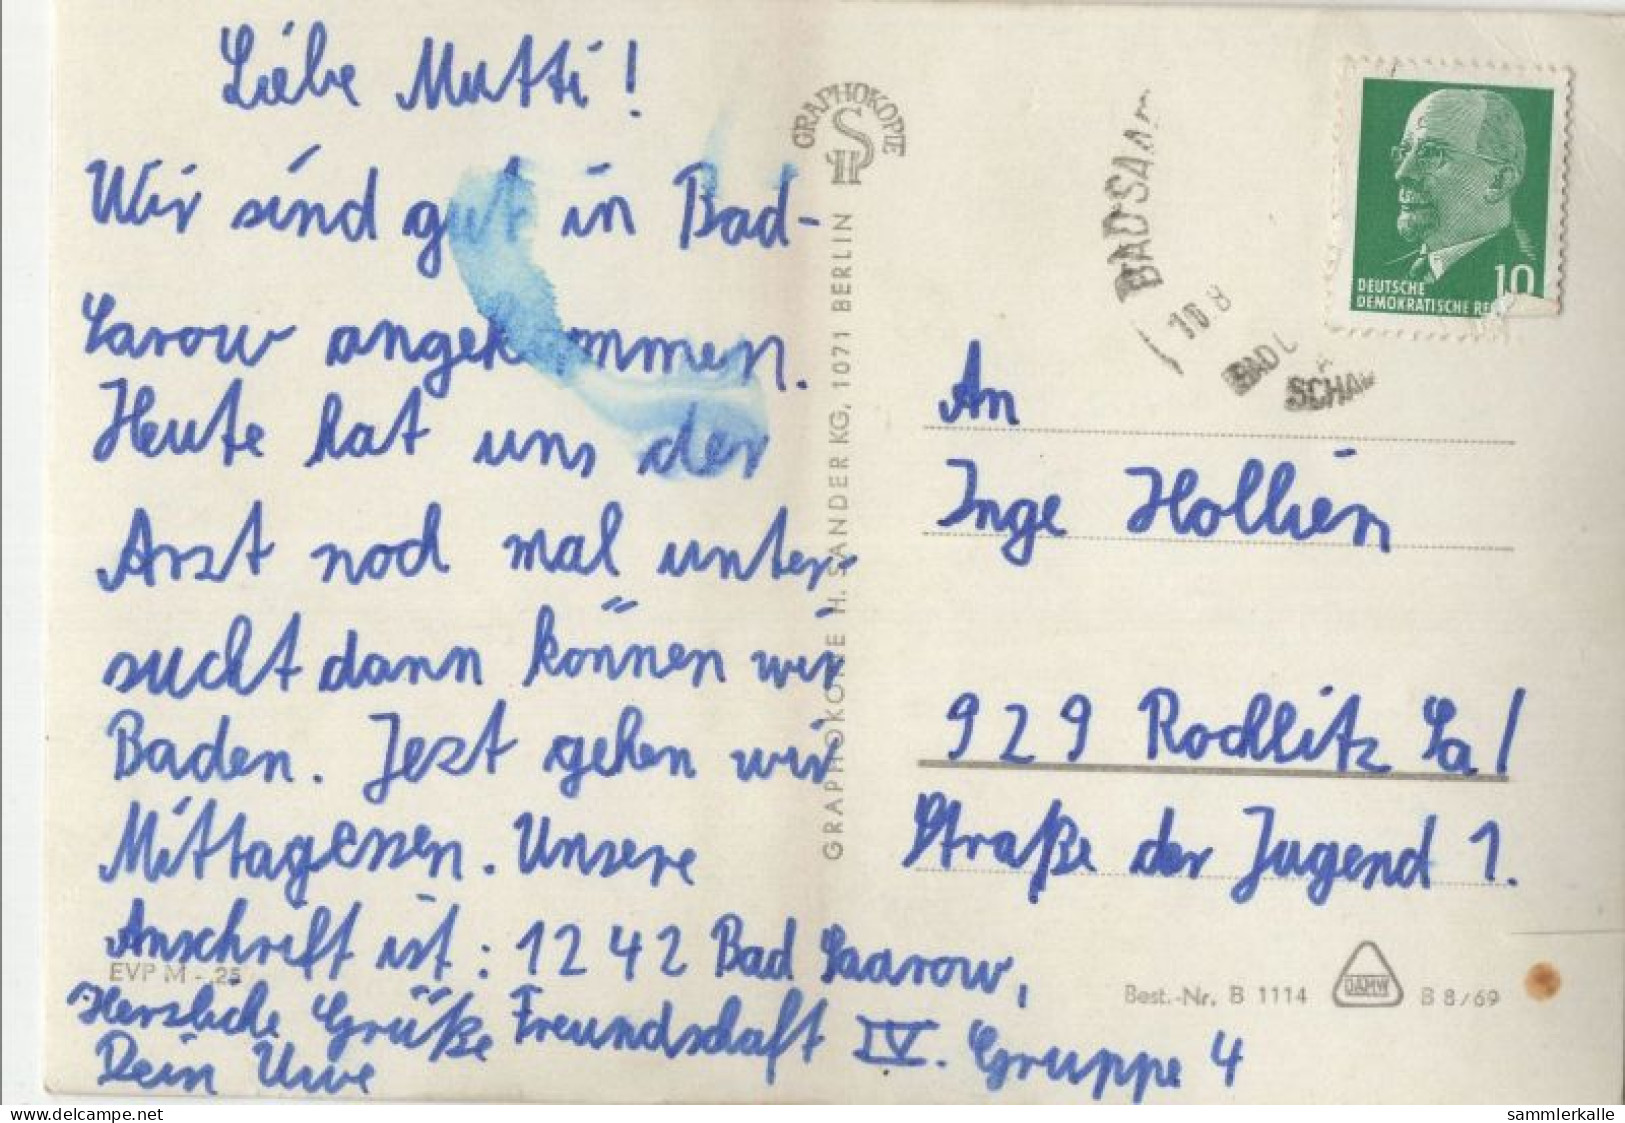 Liebe Mutti!
Wir sind gut in Bad-
Sarow angekommen.
Heute hat uns der
Arzt noch mal unter-
sucht dann können wir
Baden. Jezt gehen wir
Mittagessen. Unsere
Anschrift ist: 1242 Bad Saarow,
Herzliche Grüße Freundschaft IV. Gruppe 4
Dein Uwe
EVP M -.25
GRAPHOKOPIE
HS
GRAPHOKOPIE H. SANDER KG, 1071 BERLIN
BAD SAAR
10 8
BAD
SCHA
10
DEUTSCHE
DEMOKRATISCHE RE
An
Inge Hollien
929 Rochlitz Sa/
Straße der Jugend 1.
Best.-Nr. B 1114
DAMW
B 8/69
https://www.delcampe.net
sammlerkalle